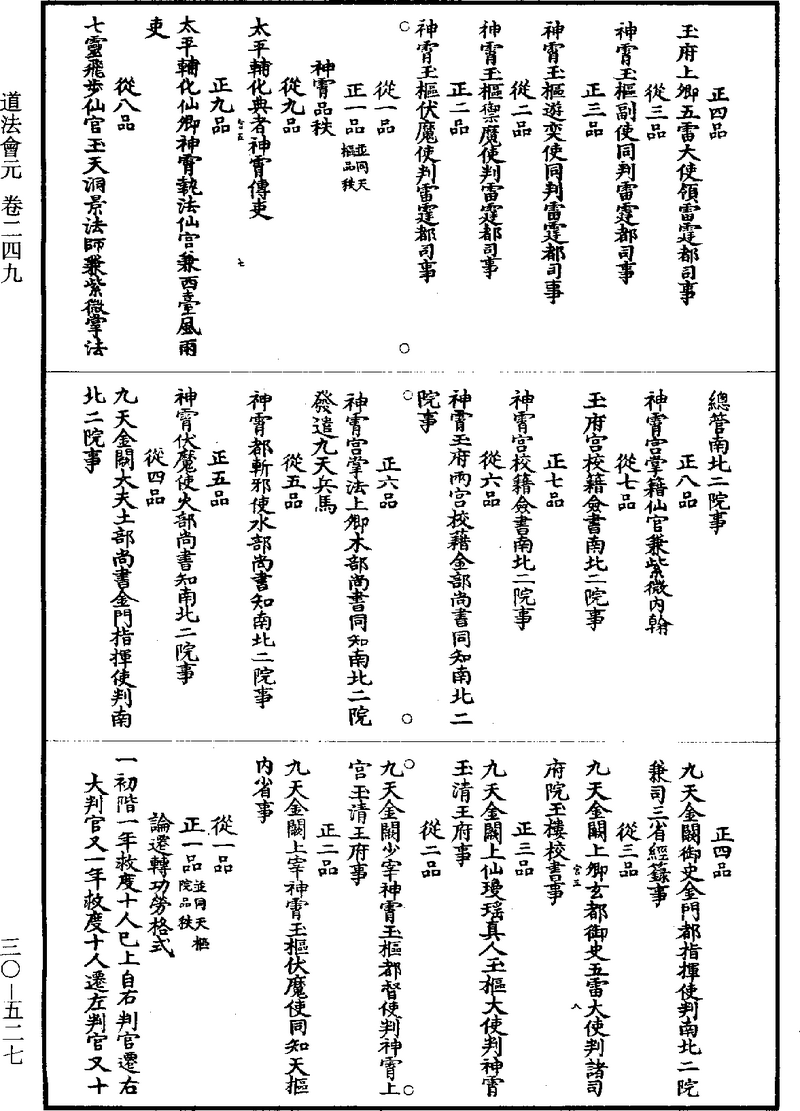 正四品
玉府上卿五雷大使領雷霆都司事
從三品
神霄玉樞副使同判雷霆都司事
正三品
神霄玉樞遊奕使同判雷霆都司事
從二品
神霄玉樞禦魔使判雷霆都司事
正二品
神霄玉樞伏魔使判雷霆都司事
從一品
正一品 並同天樞品秩
神霄品秩
從九品
太平輔化典者神霄傳吏
正九品
太平輔化仙卿神霄執法仙官兼西臺風雨
吏
從八品
七靈飛步仙官玉天洞景法師兼紫微掌法
總管南北二院事
正八品
神霄宮掌籍仙官兼紫微內翰
從七品
玉府宮校籍僉書南北二院事
正七品
神霄宮校籍僉書南北二院事
從六品
神霄玉府兩宮校籍金部尚書同知南北二
院事
正六品
神霄宮掌法上卿木部尚書同知南北二院
發遣九天兵馬
從五品
神霄都斬邪使水部尚書知南北二院事
正五品
神霄伏魔使火部尚書知南北二院事
從四品
九天金闕大夫土部尚書金門指揮使判南
北二院事
正四品
九天金闕御史金門都指揮使判南北二院
兼司三省經籙事
從三品
九天金闕上卿玄都御史五雷大使判諸司
府院玉樓校書事
正三品
九天金闕上仙瓊瑶真人玉樞大使判神霄
玉清王府事
從二品
九天金闕少宰神霄玉樞都督使判神霄上
宮玉清王府事
正二品
九天金闕上宰神霄玉樞伏魔使同知天樞
內省事
從一品
正一品 並同天樞院品秩
論遷轉功勞格式
一初階一年救度十人已上自右判官遷右
大判官又一年救度十人遷左判官又十
道法會元 卷二四九
三〇—五二七